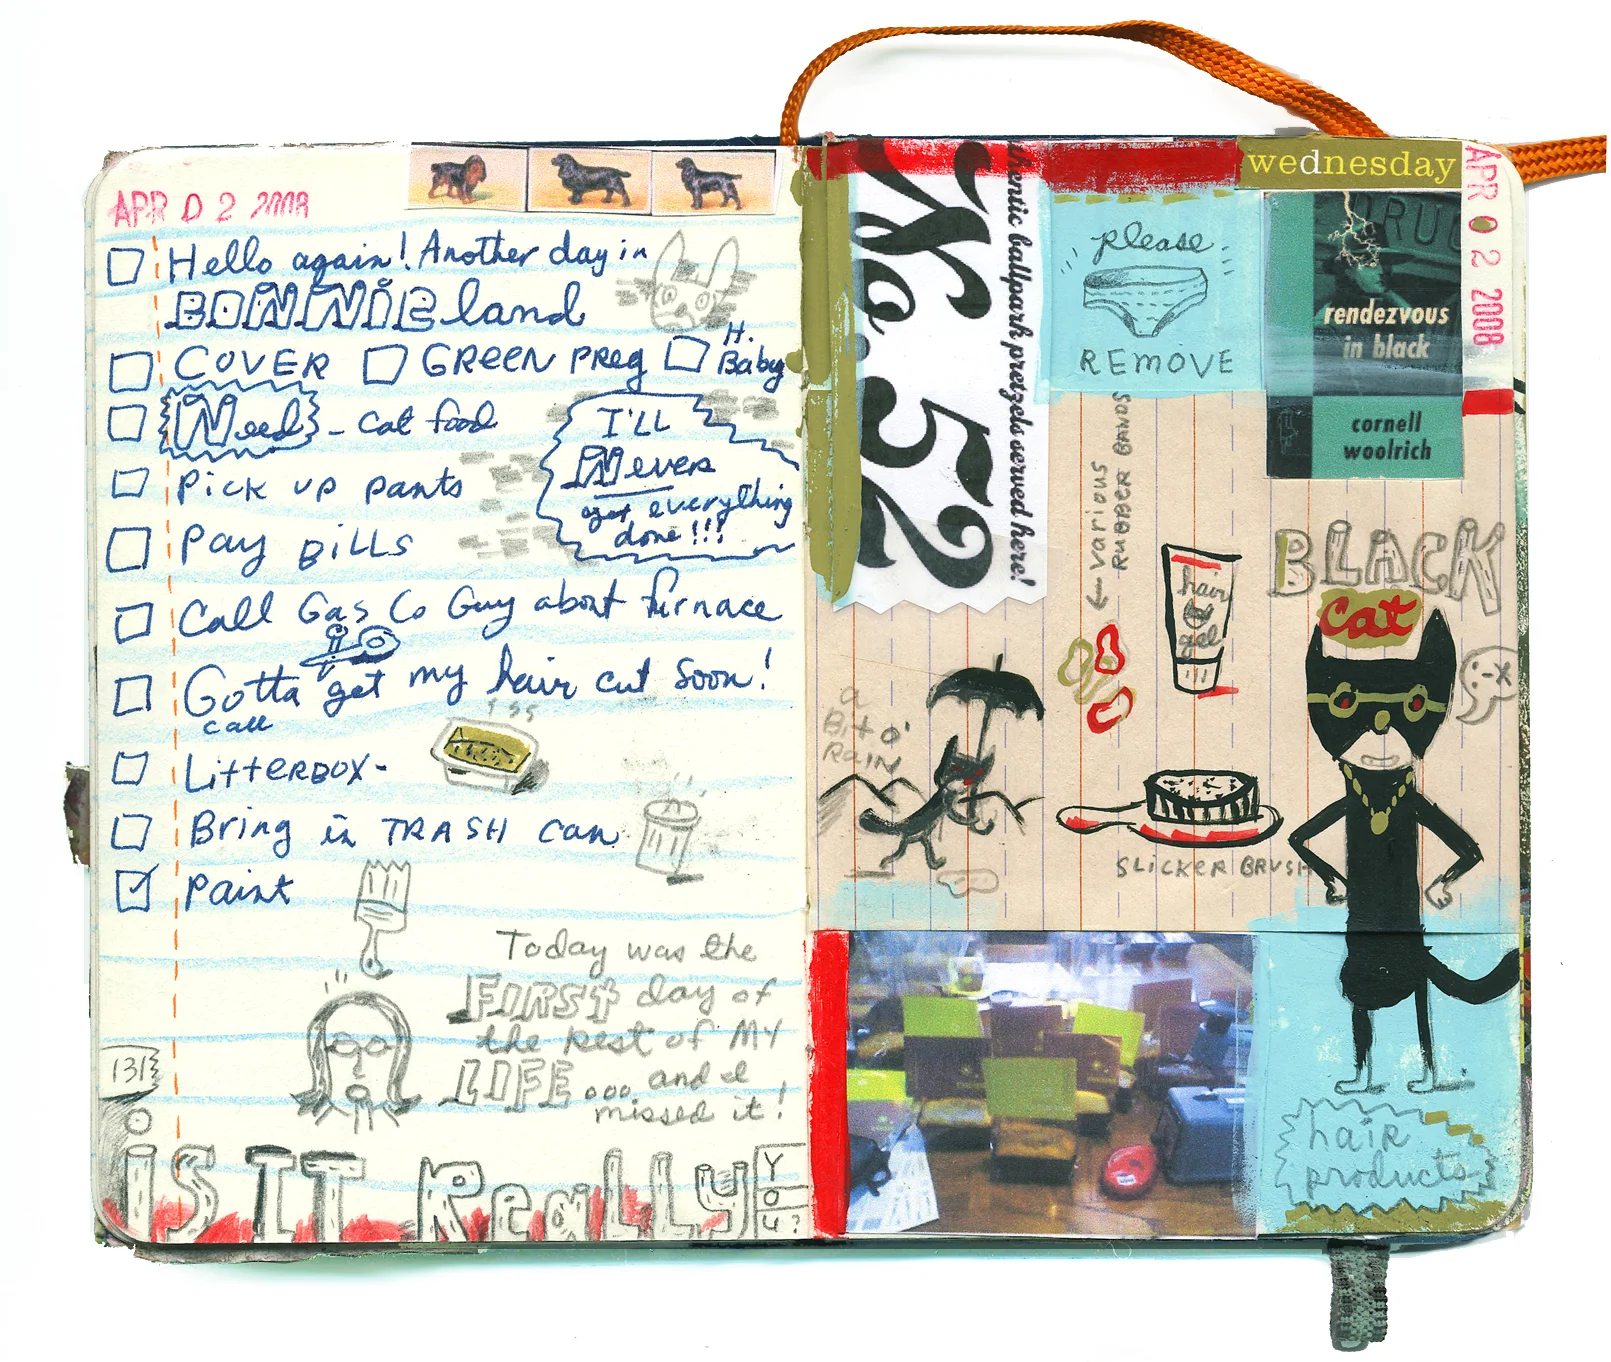 APR 02 2008
Hello again! Another day in
BONNIE land
COVER GREEN PREG H. Baby
Need - cat food
I'LL
Never
get everything
done!!!
Pick up pants
Pay Bills
Call Gas Co Guy about furnace
Gotta get my hair cut soon!
call
LitterBOX-
Bring in TRASH can
Paint
Today was the
FIRST day of
the Rest of MY
LIFE... and I
missed it!
131
iS IT Really YOU?
No. 52
thentic ballpark pretzels served here!
please
REMOVE
wednesday
APR 02 2008
rendezvous
in black
cornell
woolrich
← various
RUBBER BANDS
hair
gel
BLACK
cat
a
Bit o'
RAIN
SLICKER BRUSH
hair
products